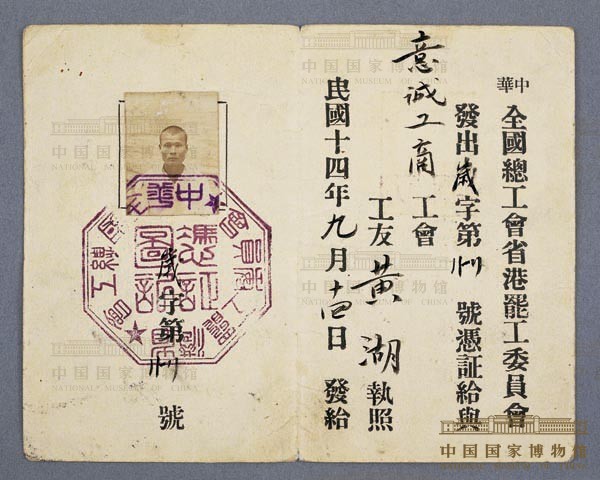 中華全國總工會省港罷工委員會
發出歲字第 號憑証給與
意誠工商工會
工友黃湖執照
民國十四年九月十四日發給
歲字第 號
中華
中国国家博物馆
NATIONAL MUSEUM OF CHINA